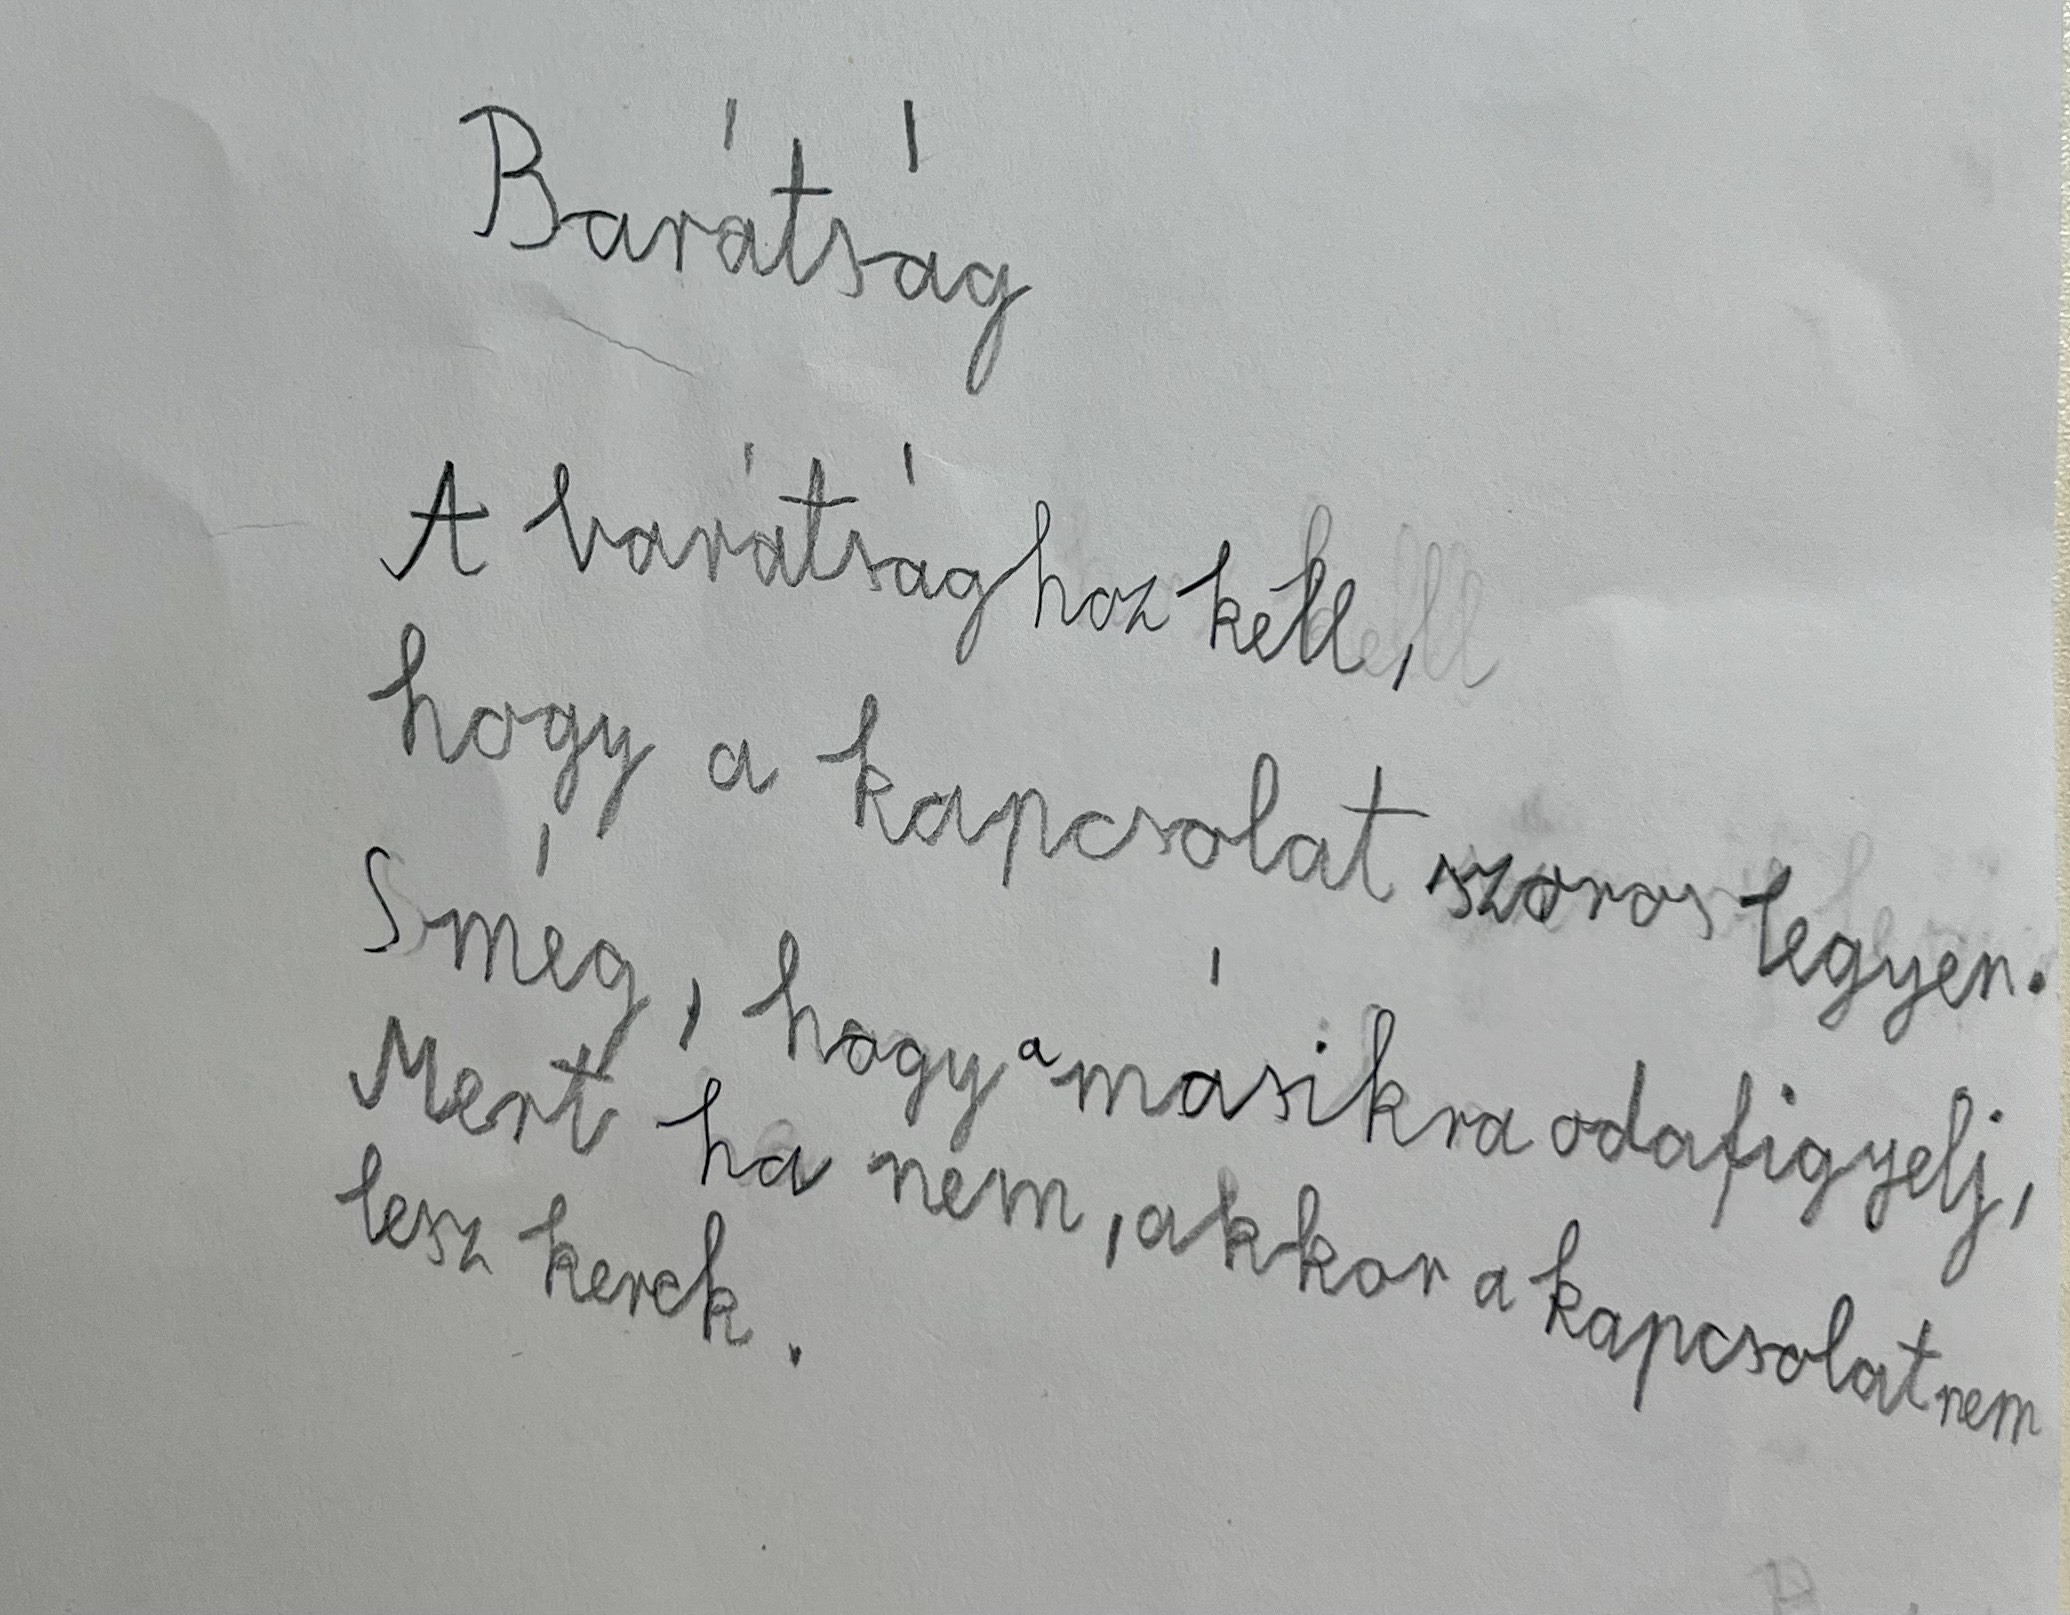 Barátság
A barátsághoz kell,
hogy a kapcsolat szoros legyen.
S még, hogy a másikra odafigyelj,
Mert ha nem, akkor a kapcsolat nem
lesz kerek.